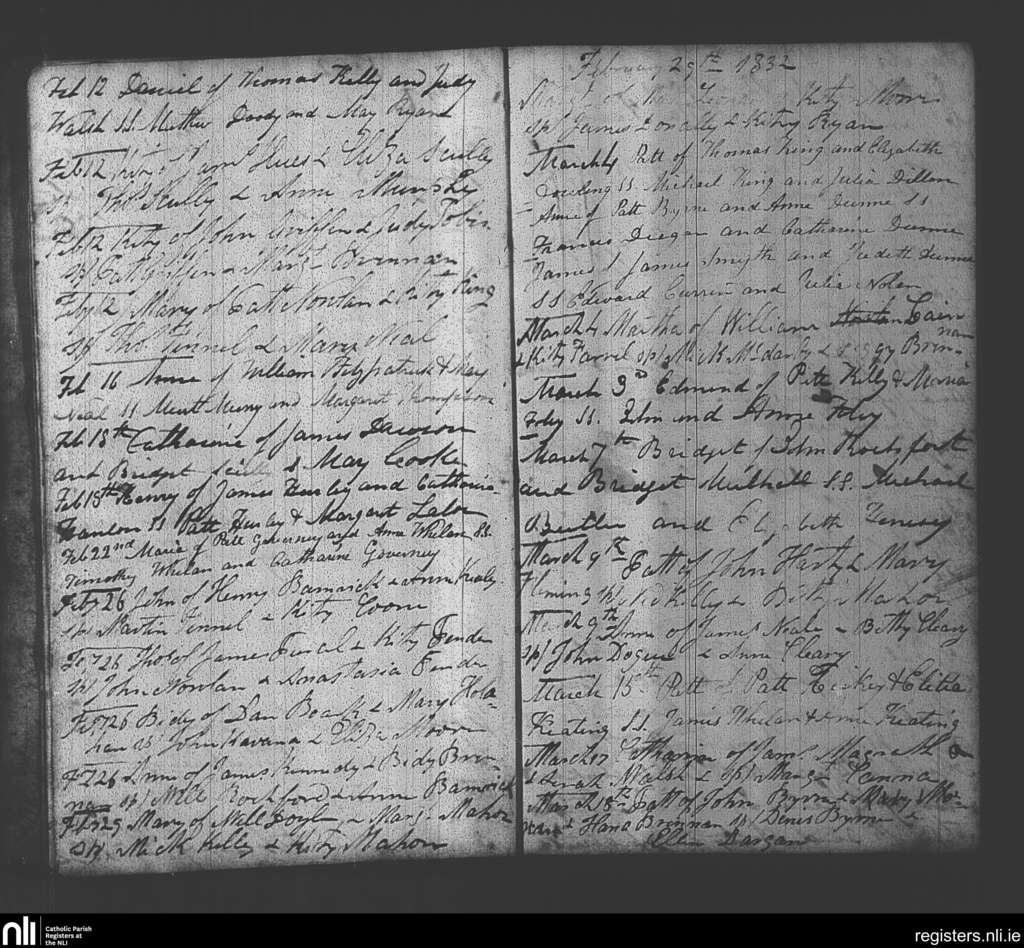 Feb 12 Daniel of Thomas Kelly and Judy
Walsh SS. Mathew Doody and May Ryan
Feb 12 Kity of Jams & Eliza Scully
Sp Thos Scully & Anne Murphy
Feb 12 Kity of John Griffen & Judy Tobin
Sp/ Patt Griffen & Margt Brennan
Feby 12 Mary of Patt Nowlan & Kity King
Sp/ Thos Finnel & Mary Neal
Feb 16 Anne of William Fitzpatrick & May
Neal SS and Margaret Thompson
Feb 18th Catharine of James Dawson
and Bridget S May Cooke
Feb 18th Henry of James Hurley and Catharine
SS Patt Hurley & Margaret Lalor
Feb 22nd Maria of Patt Governey and Anne Whelan SS
Timothy Whelan and Catharine Governey
Feby 26 John of Henry Bamrick & Anne Kealy
Sp/ Martin Finnel & Kity Coone
Feb 26 Thos of James & Kity Fender
Sp/ John Nowlan & Anastasia Fender
Feb 26 Bidy of Dan & Mary Hola-
han Sp/ John Kavanagh & Eliza Moore
Feb 26 Anne of James Kennedy & Bidy Bren-
nan Sp/ Will Rochford & Anne Bamrick
Feb 29 Mary of Will Doyle & Margt Mahon
Sp/ Mick Kelly & Kity Mahon
February 29th 1832
Margt of & Kity Moore
Sp/ James & Kity Ryan
March 4 Patt of Thomas King and Elizabeth
Dowling SS. Michael King and Julia Dillon
Anne of Patt Byrne and Anne Dunne SS
Francis Deegan and Catharine Dunne
James of James Smyth and Dunne
SS Edward Curren and Julia Nolan
March 4 Martha of William Cain
& Kity Farrel Sp/ Mick McDarby & Peggy Bren-
nan
March 3d Edmund of Patt Kelly & Maria
Foley SS. John and Foley
March 7th Bridget of John Rochfort
and Bridget Mulhall SS. Michael
Butler and Elizabeth
March 9th Patt of John Hart & Mary
Fleming Sp/ Kelly & Betty Mahon
March 9th Anne of James Neale & Betty Cleary
Sp/ John & Anne Cleary
March 15th Patt of Patt Hickey & Eliza
Keating SS. James Whelan & Anne Keating
March Catharine of Jams Magrath
& Sarah Walsh & Sp/ Margt
March 18th Patt of John Byrne & Mary
& Hana Brennan Sp/ Denis Byrne &
Ellen Dargan
nli
Catholic Parish
Registers at
the NLI
registers.nli.ie